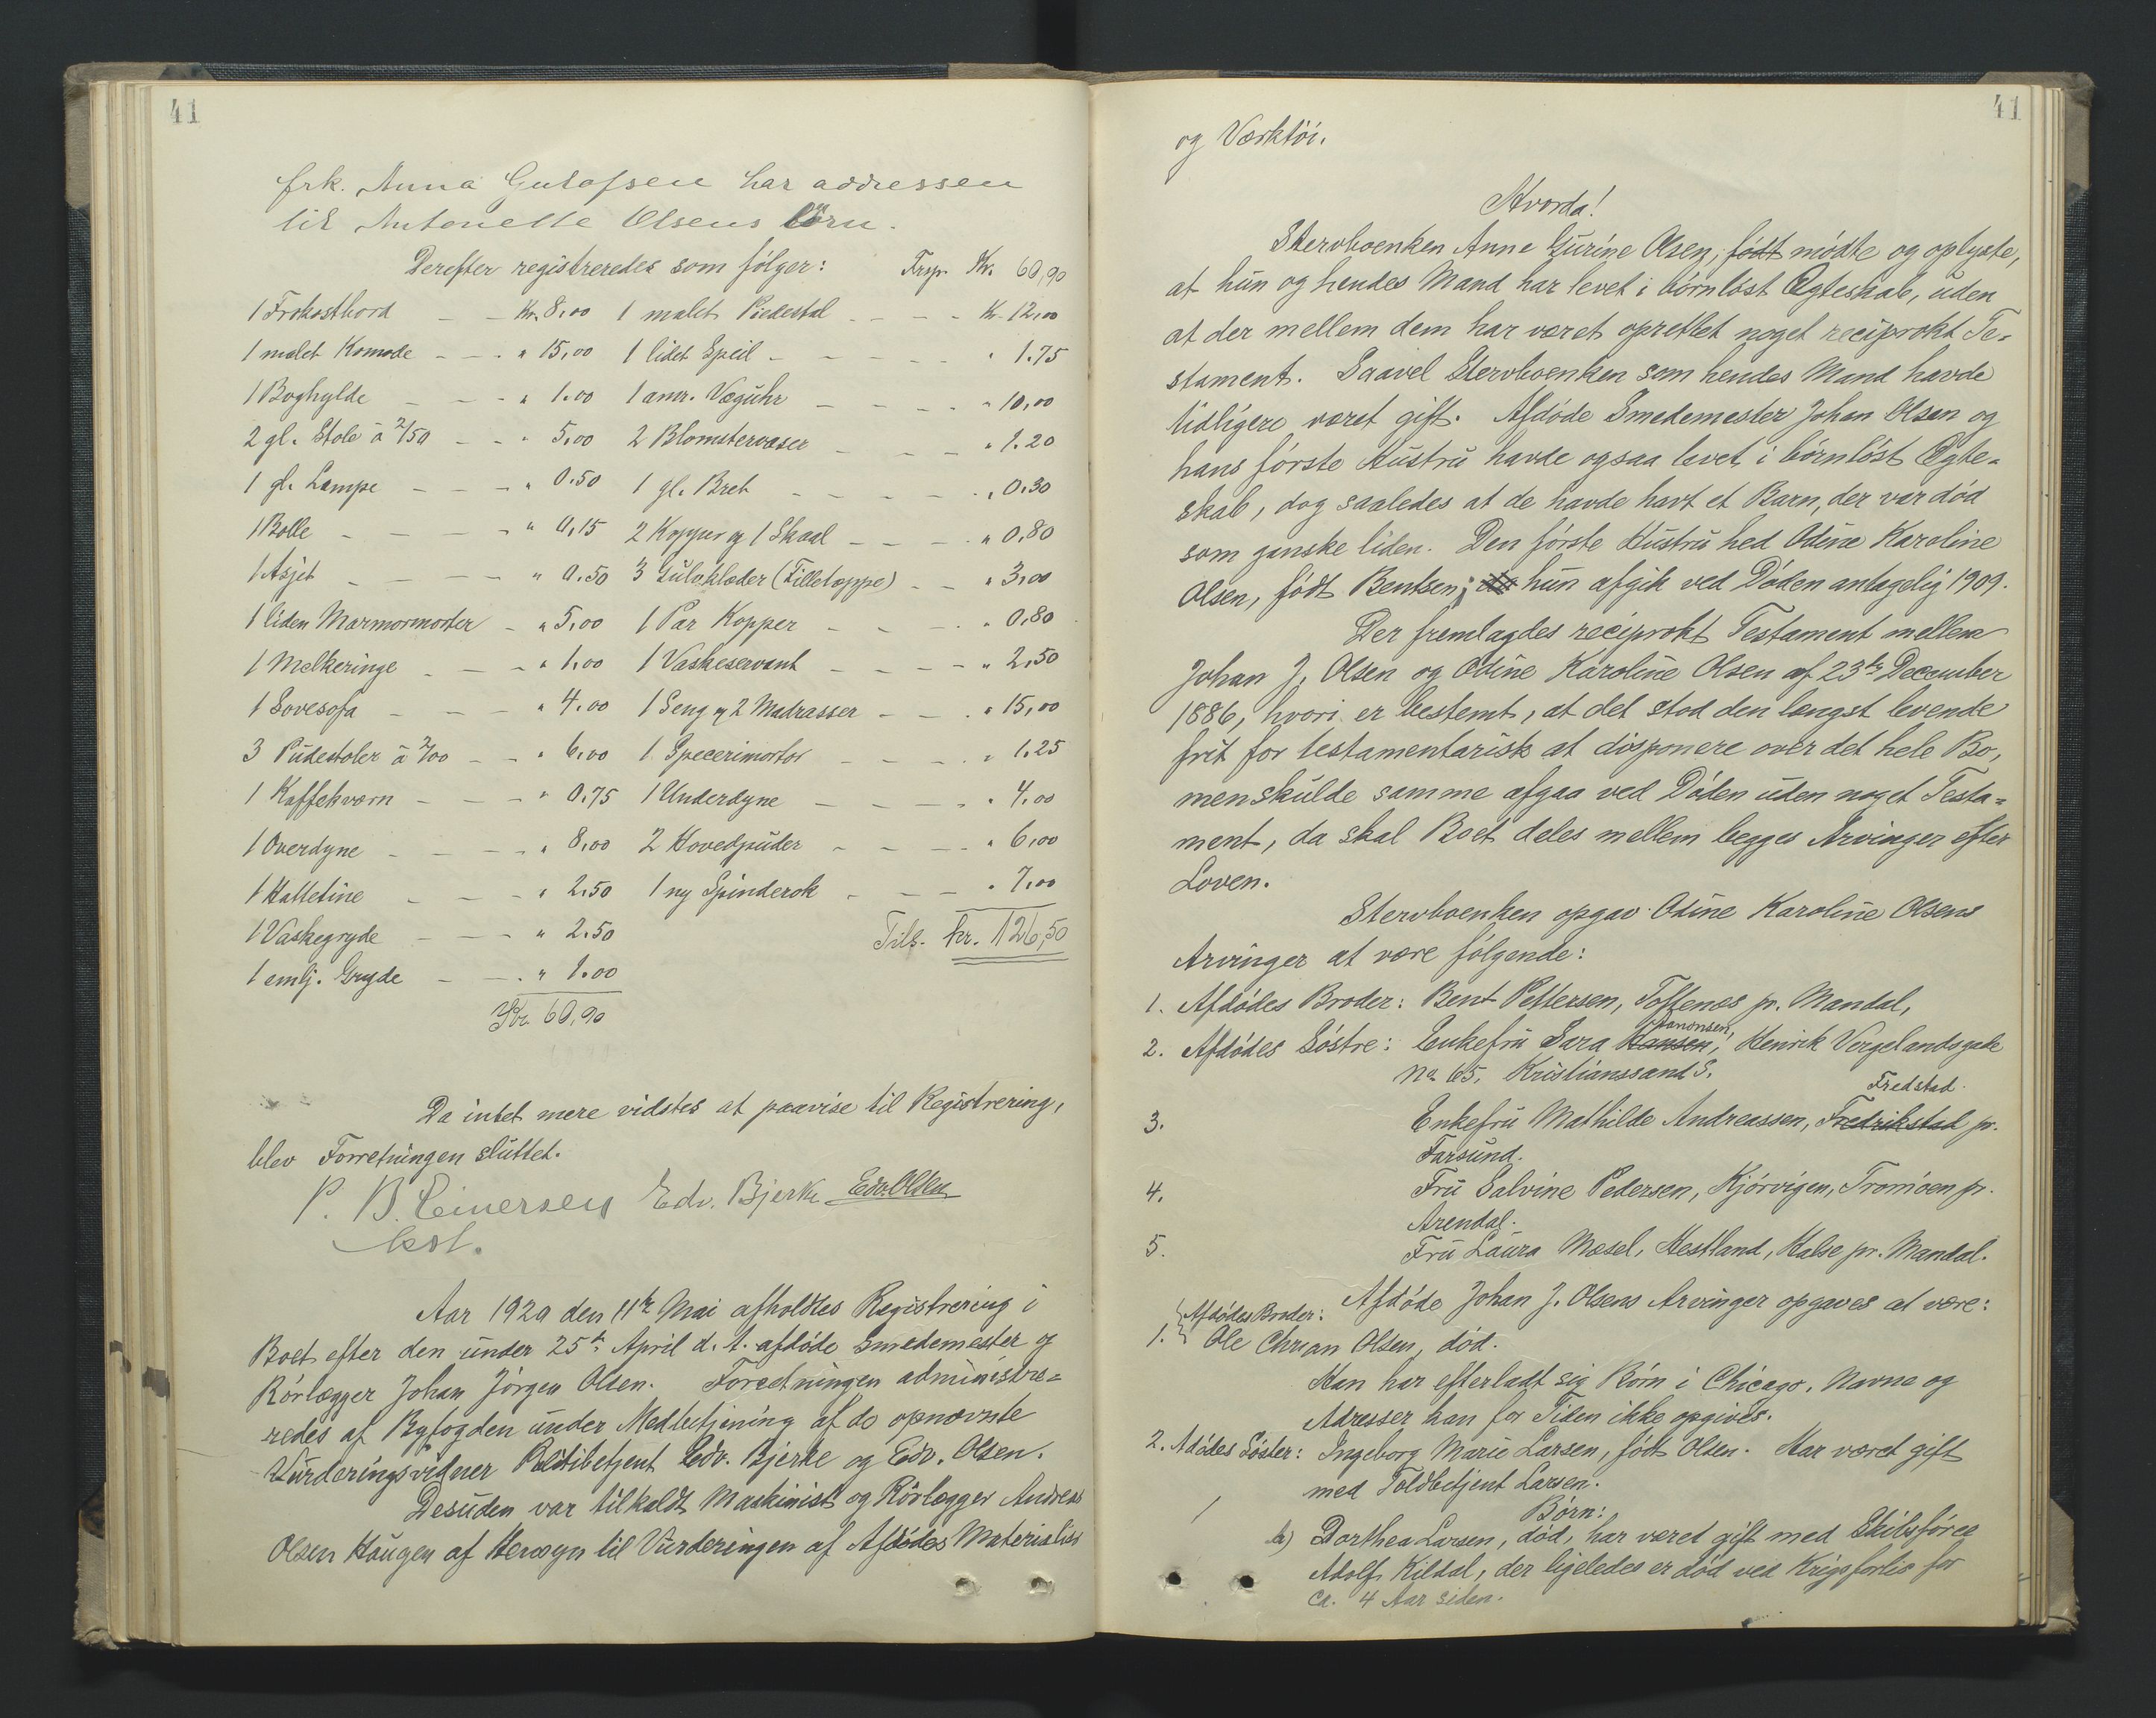 41
frk. Anna Gulofsen har addressen
til Antonette Olsens börn.
Derefter registreredes som følger: Trsp. Kr. 60,90
1 Frokostbord - - Kr. 8,00 1 malet Piedestal - - - - Kr. 12,00
1 malet Komode - - - " 15,00 1 lidet Speil - - - - - " 1.75
1 Boghylde - - - " 1.00 1 amr. Væguhr - - - - " 10,00
2 gl. Stole à 2/50 - - " 5,00 2 Blomstervaser - - - " 1.20
1 gl. Lampe - - - " 0.50 1 gl. Bret - - - - - " 0.30
1 Bolle - - - - " 0,15 2 Kopper og 1 Skaal - - - - " 0,80
1 Asjet - - - - " 0.50 3 Gulvklæder (Filletæppe) - - " 3,00
1 liden Marmormorter - " 5,00 1 Par Kopper - - - - " 0,80
1 Melkeringe - - - " 1.00 1 Vaskeservant - - - - " 2,50
1 Sovesofa - - - " 4.00 1 Seng og 2 Madrasser - - - " 15,00
3 Pudestoler à 2/00 - - " 6,00 1 Specerimorter - - - - " 1.25
1 Kaffekværn - - - " 0.75 1 Underdyne - - - - " 4.00
1 Overdyne - - - - " 8,00 2 Hovedpuder - - - - " 6,00
1 Hattetine - - - " 2.50 1 ny Spinderok - - - " 7.00
1 Vaskegryde - - - " 2.50 Tils. kr. 126,50
1 emlj. Gryde - - - " 1.00
Kr. 60,90
Da intet mere vidstes at paavise til Registrering,
blev Forretningen sluttet.
P. B. Einersen Edv. Bjerke Edv. Olsen
kst.
Aar 1920 den 11te Mai afholdtes Registrering i
Boet efter den under 25de April d. A. afdøde Smedemester og
Rørlægger Johan Jörgen Olsen. Forretningen administre=
redes af Byfogden under Medbetjening af de opnævnte
Vurderingsvidner Politibetjent Edv. Bjerke og Edv. Olsen.
Desuden var tilkaldt Maskinist og Rörlægger Andreas
Olsen Haugen af Herøyn til Vurderingen af Afdødes Materialier
41
og Værktöi.
Hvorda!
Stervboenken Anne Gurine Olsen, født mødte og oplyste,
at hun og hendes Mand har levet i börnløst Ægteskab, uden
at der mellem dem har været oprettet noget reciprokt Te=
stament. Saavel Stervboenken som hendes Mand havde
tidligere været gift. Afdøde Smedemester Johan Olsen og
hans første Hustru havde ogsaa levet i børnløst Ægte=
skab, dog saaledes at de havde havt et Barn, der var død
som ganske liden. Den første Hustru hed Odine Karoline
Olsen, født Bentsen; hun afgik ved Døden antagelig 1909.
Der fremlagdes reciprokt Testament mellem
Johan J. Olsen og Odine Karoline Olsen af 23de December
1886, hvori er bestemt, at det stod den længst levende
frit for testamentarisk at disponere over det hele Bo,
men skulde samme afgaa ved Døden uden noget Testa=
ment, da skal Boet deles mellem begges Arvinger efter
Loven.
Stervboenken opgav Odine Karoline Olsens
Arvinger at være følgende:
1. Afdødes Broder: Bent Pettersen, Toftenes pr. Mandal,
2. Afdødes Søstre: Enkefru Sara Hansen, Henrik Vergelandsgade
No 65, Kristianssand S.
Fredstad.
3. Enkefru Mathilde Andreassen, Fredrikstad pr.
Farsund.
4. Fru Salvine Pedersen, Kjörvigen, Tromöen pr.
Arendal.
5. Fru Laura Mæsel, Hestland, Halse pr. Mandal.
Afdøde Johan J. Olsens Arvinger opgaves at være:
Afdødes Broder:
1. Ole Chrian Olsen, død.
Han har efterladt sig Børn i Chicago. Navne og
Adresser kan for Tiden ikke opgives.
2. Afdødes Søster: Ingeborg Marie Larsen, født Olsen. Har været gift
med Toldbetjent Larsen.
Børn:
a) Dorthea Larsen, død, har været gift med Skibsfører
Adolf Kildal, der ligeledes er død ved Krigsforlis for
ca. 4 Aar siden.